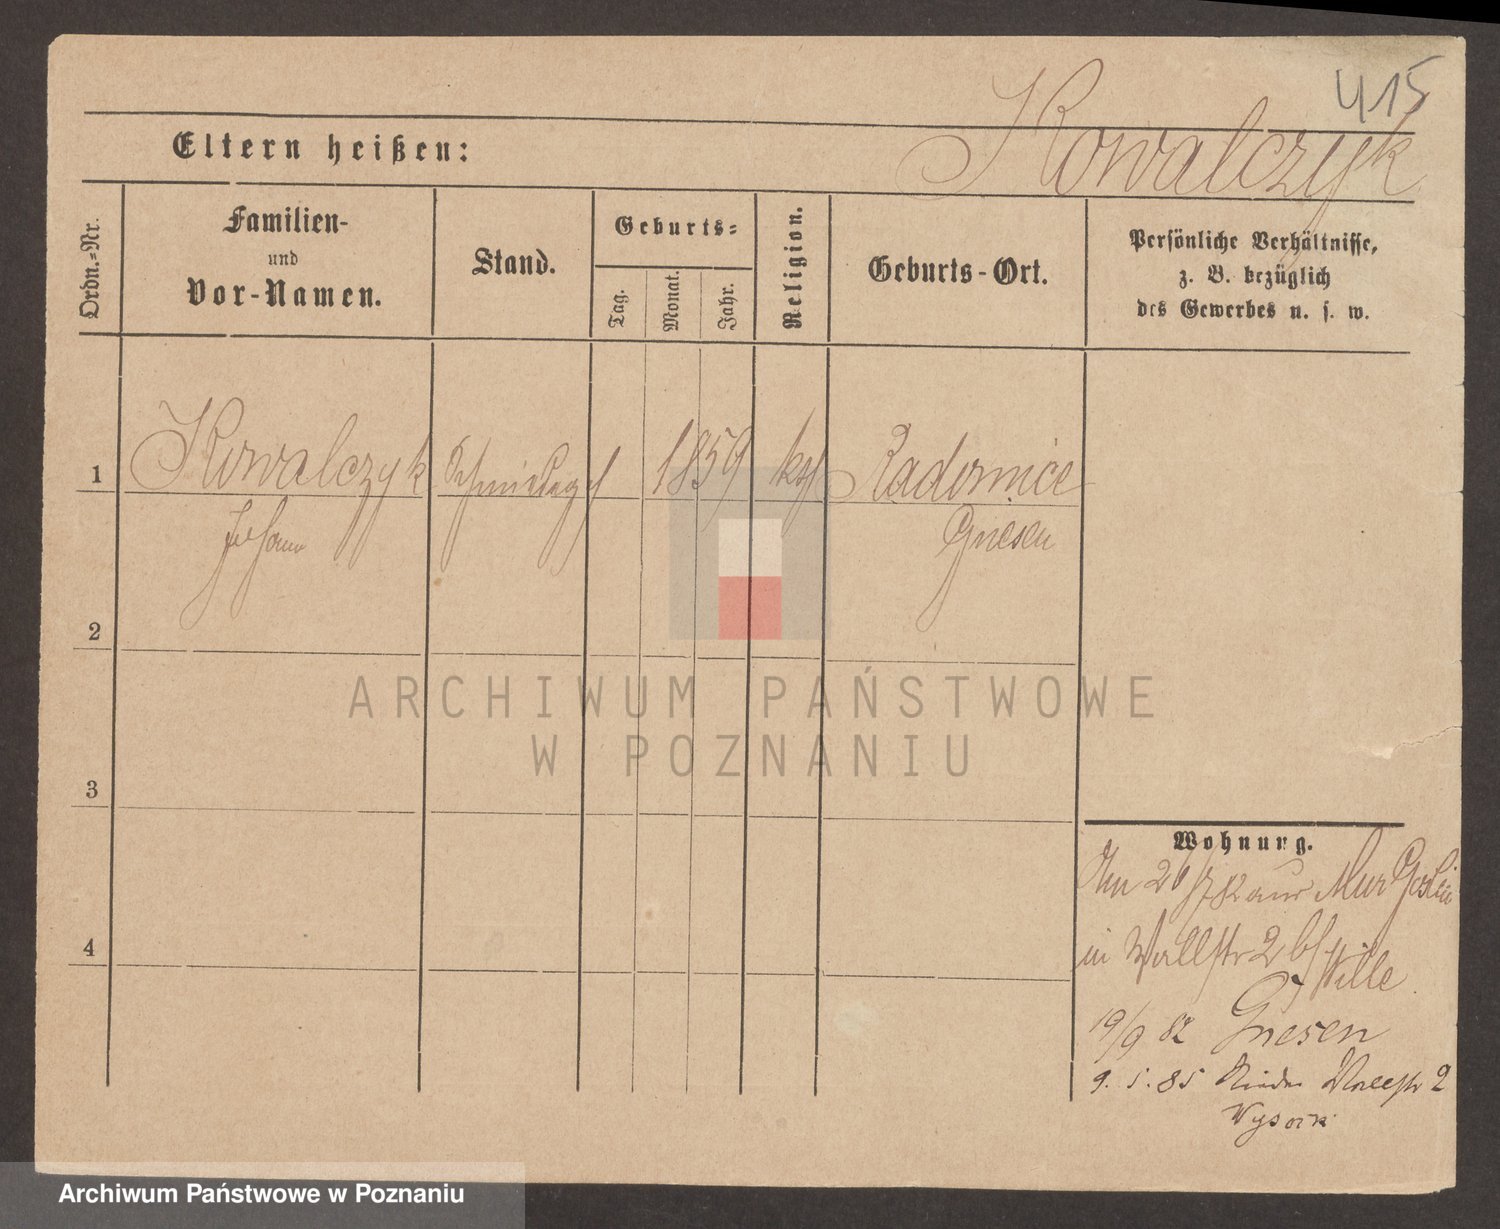 415
Kowalczyk
Eltern heißen:
Ordn.=Nr.
Familien-
und
Vor-Namen.
Stand.
Geburts=
Tag.
Monat.
Jahr.
Religion.
Geburts-Ort.
Persönliche Verhältnisse,
z. B. bezüglich
des Gewerbes u. s. w.
1 Kowalczyk 1859 kth Radomice
Johann Gnesen
2
ARCHIWUM PAŃSTWOWE
W POZNANIU
3
Wohnung.
26/7 82 aus Mur Goslin
in Wallstr 2 b/ Wille
4
19/9 82 Gnesen
9. 5. 85 Wallstr 2
Archiwum Państwowe w Poznaniu